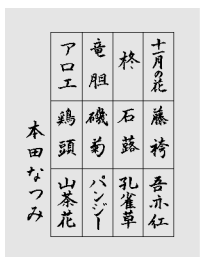 十一月の花
藤袴
吾亦紅
柊
石蕗
孔雀草
竜胆
磯菊
パンジー
アロエ
鶏頭
山茶花
本田なつみ